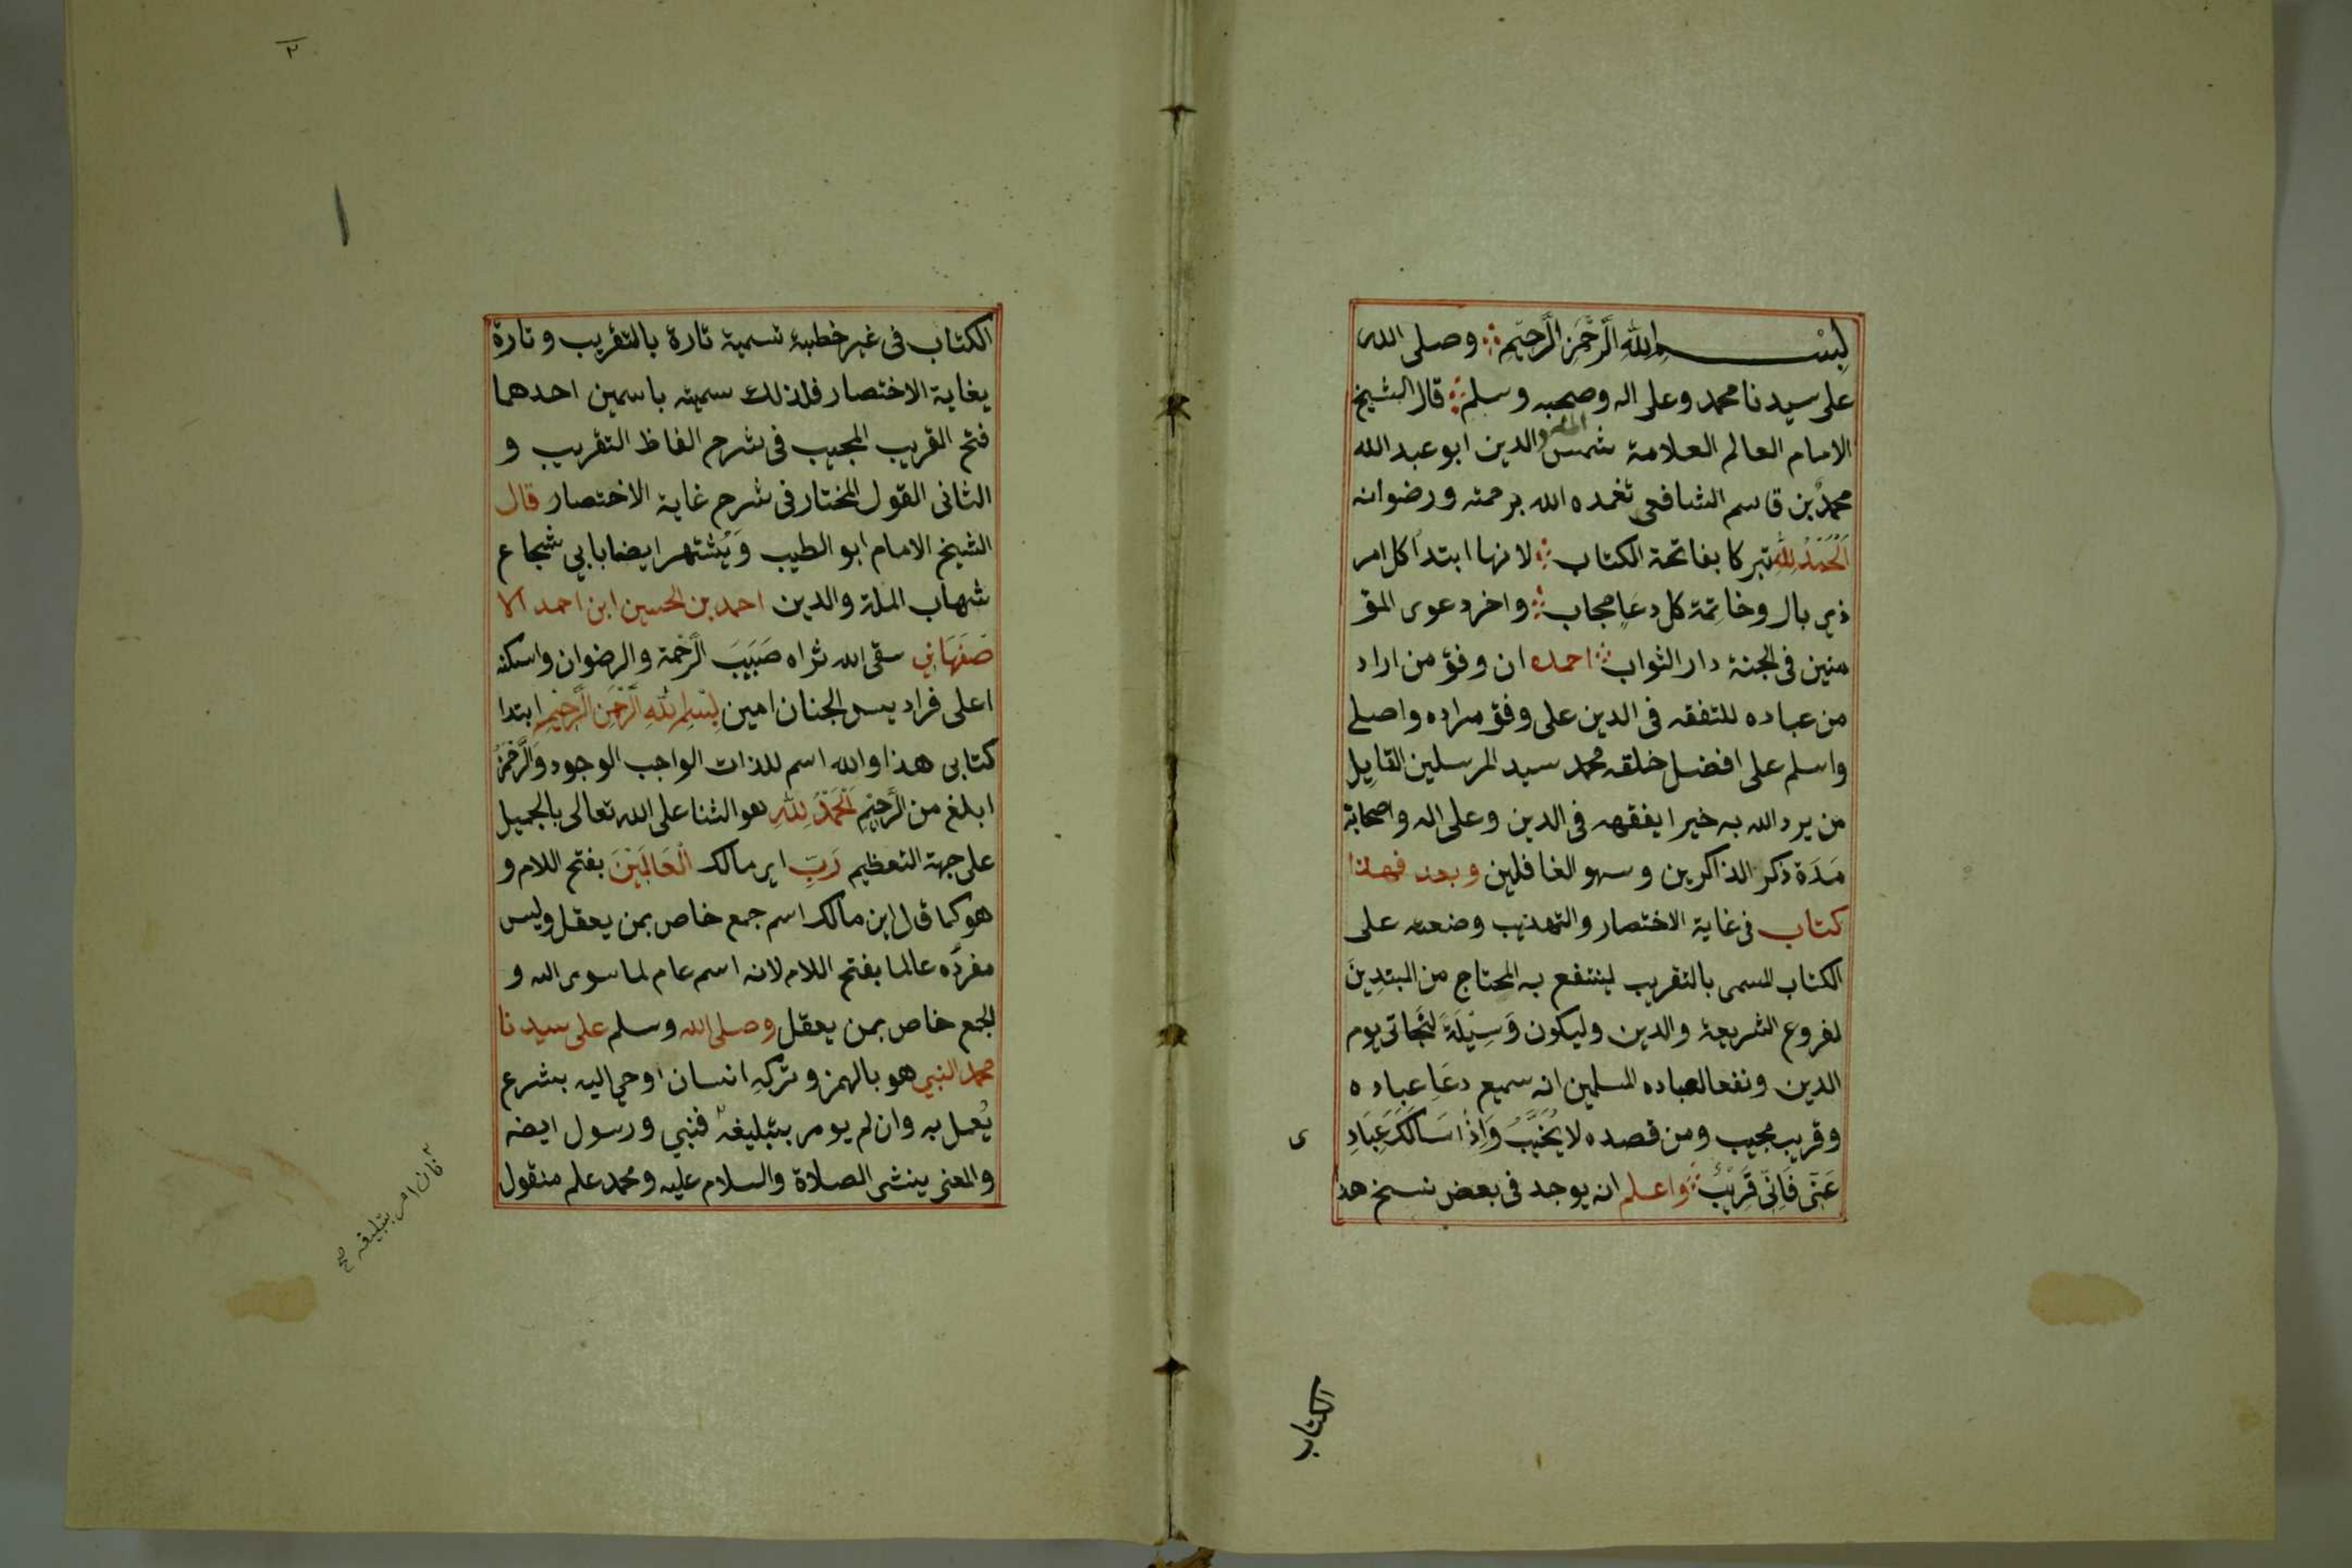 بِسْمِ اللهِ الرَّحْمَنِ الرَّحِيْمِ وصلى الله
على سيدنا محمد وعلى اله وصحبه وسلم قال الشيخ
الامام العالم العلامة شمس الملة والدين ابو عبد الله
محمد بن قاسم الشافعي تغمده الله برحمته ورضوانه
اَلْحَمْدُ لِلّٰهِ تبركا بفاتحة الكتاب لانها ابتدا كل امر
ذي بال وخاتِمَة كل دعَاٍ مجاب واخر دعوى المؤ
منين في الجنة دار الثواب احمده ان وفق من اراد
من عباده للتفقه في الدين على وفق مراده واصلي
واسلم على افضل خلقه محمد سيد المرسلين القايِل
من يرد الله به خيرا يفقهه في الدين وعلى اله واصحابه
مَدَة ذكر الذاكرين وسهو الغافلين وبعد فهذا
كتاب في غاية الاختصار والتهذيب وضعته على
الكتاب المسمى بالتقريب لينتفع به المحتاج من المبتدِينَ
لفروع الشريعة والدين وليكون وَسِيْلَةً لنَجاتي يوم
الدين ونفعا لعباده المسلمين انه سميع دعَاِ عباده
وقريب مجيب ومن قصده لا يُخَيَّبُ وَاِذَا سَاَلَكَ عِبَادِ
ى
عَنِّي فَاِنِّي قَرِيْبٌ واعلم انه يوجد في بعض نسخ هذ
الكتاب
٢
الكتاب في غير خطبته تسمية تارة بالتقريب وتارة
بغاية الاختصار فلذلك سميته باسمين احدهما
فتح القريب المجيب في شرح الفاظ التقريب و
الثاني القول المختار في شرح غاية الاختصار قال
الشيخ الامام ابو الطيب وَيُشتهر ايضا بابي شجاع
شهاب الملة والدين احمد بن الحسين ابن احمد الا
صْفَهَانِي سقى الله ثراه صَبِيَبَ الرَّحْمَة والرضوان واسكنه
اعلى فراديس الجنان امين بِسْمِ اللهِ الرَّحْمَنِ الرَّحِيْمِ ابتدا
كتابي هذا والله اسم للذات الواجب الوجود وَالرَّحْمَنُ
ابلغ من الرَّحِيْمِ اَلْحَمْدُ لِلّٰهِ هو الثنا على الله تعالى بالجميل
على جهة التعظيم رَبِّ اي مالك الْعَالَمِيْنَ بفتح اللام و
هو كما قال ابن مالك اسم جمع خاص بمن يعقل وليس
مفردَه عالما بفتح اللام لانه اسم عام لما سوى الله و
الجمع خاص بمن يعقل وصلى الله وسلم على سيدنا
محمد النبي هو بالهمز وتركه انسان اوحي اليه بشرع
يُعمل به وان لم يومر بتبليغه فنبي ورسول ايضه
والمعنى ينشي الصلاة والسلام عليه ومحمد علم منقول
فان امر بتبليغه صح